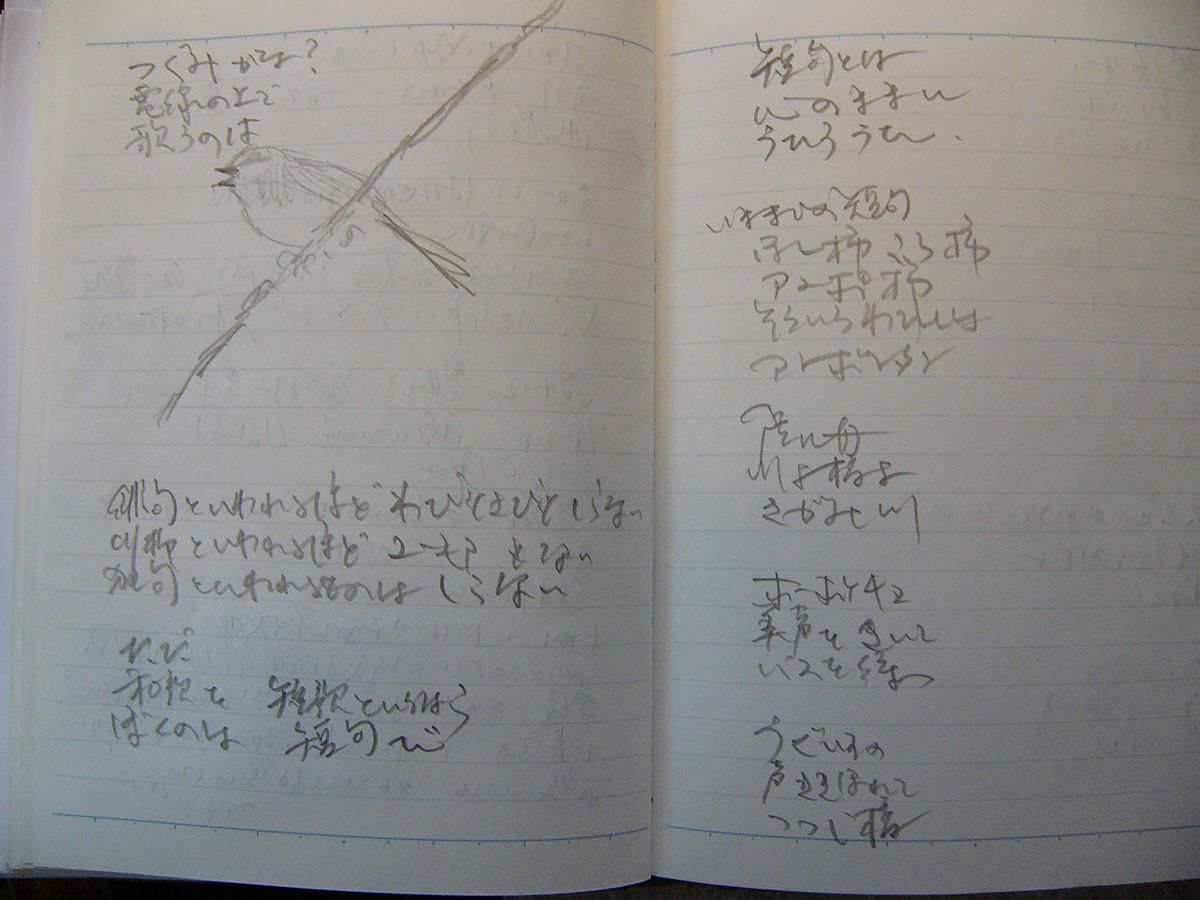 つぐみかな?
電線の上で
歌うのは
俳句といわれるほど わびもさびもしらない
川柳といわれるほど ユーモアもない
狂句といわれるものは しらない
和歌を 短歌というなら
ぼくのは 短句で
短句とは
心のままに
うたううた.
短句
ほし柿 ころ柿
アンポ柿
そういうわたしは
アンポンタン
川よ橋よ
さがみ川
ホーホケキョ
美声をきいて
バスを待つ
うぐいすの
声ききほれて
つつじ橋